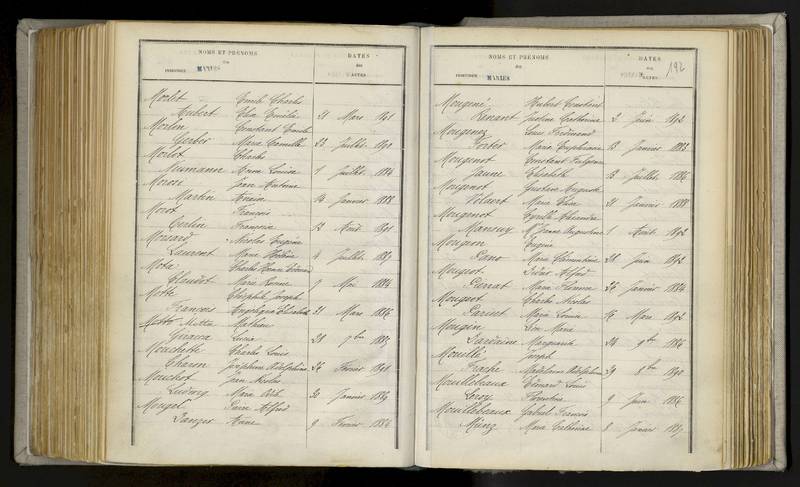 NOMS ET PRÉNOMS
des
MARIÉS
DATES
des
ACTES
Morlet Emile Charles
Aubert Elia Emilie 21 Mars 1891
Morlon Constant Emile
Gerber Marie Camille 22 Juillet 1890
Morlot Charles
Neumann Anne Louise 1 Juillet 1884
Morosi Jean Antoine
Martin 14 Janvier 1888
Morot François
Cerlin Françoise 12 Août 1891
Morsard Nicolas Eugène
Laurent Marie 4 Juillet 1889
Mota Charles Henri
Claudot Marie 9 Mai 1884
Motte Théophile Joseph
François Angélique Elisabeth 31 Mars 1886
Motta Mathieu
Giacca Lucie 28 7bre 1885
Mouchette Charles Louis
Charon Joséphine 24 Février 1891
Mouchot Jean Nicolas
Ludwig Marie 30 Janvier 1889
Mougel Pierre Alfred
Sanger Anne 9 Février 1886
NOMS ET PRÉNOMS
des
MARIÉS
DATES
des
ACTES
192
Mougené Hubert Constant
Renant Justine Catherine 2 Juin 1892
Mougenez Louis Ferdinand
Fortér Marie Euphrasie 13 Janvier 1883
Mougenot Constant
Jaune Elisabeth 13 Juillet 1886
Mougenot Gustave Auguste
Volant Marie Elisa 21 Janvier 1888
Mougenot Cyrille Alexandre
Mansuy Mie Jeanne Augustine 1 Août 1892
Mougeon Eugène
Pano Marie Clémentine 28 Juin 1892
Mougeot Isidore Alfred
Pierrat Marie 26 Janvier 1884
Mougeot Charles Nicolas
Parisot Marie Louise 16 Mars 1892
Mougin Léon Marie
Fontaine Marguerite 24 9bre 1886
Mouillé Joseph
Frache Madeleine Joséphine 29 8bre 1890
Mouillebeaux Edouard Louis
Leroy Florentine 9 Juin 1886
Mouillebeaux Gabriel François
Münz Marie Catherine 8 Janvier 1887